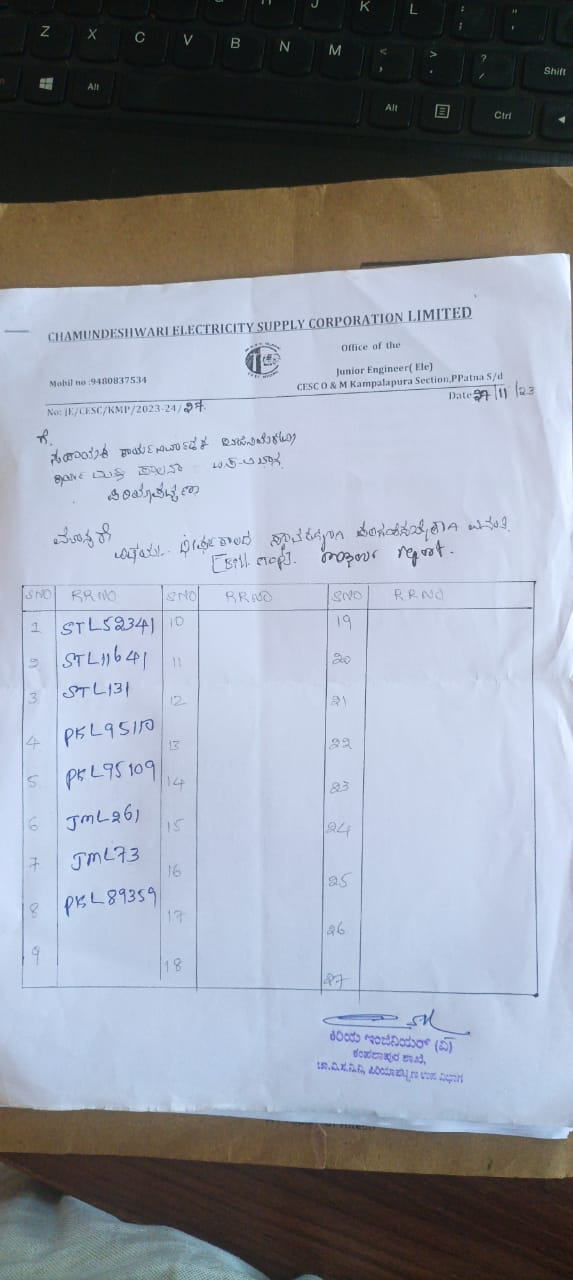 Z X C V B N M < , > . ? / Shift
Alt Alt Ctrl
CHAMUNDESHWARI ELECTRICITY SUPPLY CORPORATION LIMITED
Office of the
Junior Engineer( Ele)
Mobil no :9480837534
CESC O & M Kampalapura Section,PPatna S/d
No: JE/CESC/KMP/2023-24/27.
Date 27/11/23
ಗೆ.
ಸಹಾಯಕ ಕಾರ್ಯನಿರ್ವಾಹಕ ಇಂಜಿನಿಯರ್
ಪಿರಿಯಾಪಟ್ಟಣ
ಮಾನ್ಯರೇ
ವಿಷಯ.. report.
SNO RRNO SNO RRNO SNO RRNO
1 STL52341 10 19
2 STL11641 11 20
3 STL131 12 21
4 PKL95110 13 22
5 PKL95109 14 23
6 JML261 15 24
7 JML73 16 25
8 PKL89359 17 26
9 18 27
ಕಿರಿಯ ಇಂಜಿನಿಯರ್ (ವಿ)
ಕಂಪಲಾಪುರ ಶಾಖೆ,
ಚಾ.ವಿ.ಸ.ನಿ.ನಿ, ಪಿರಿಯಾಪಟ್ಟಣ ಉಪ ವಿಭಾಗ